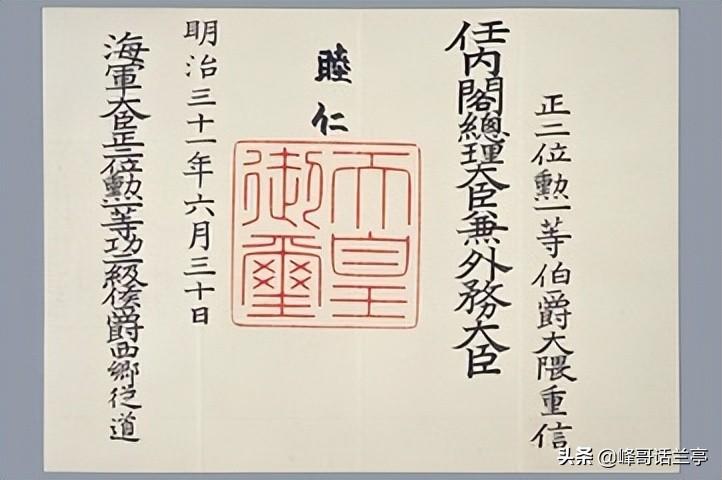 正三位勲一等伯爵大隈重信
任内閣總理大臣兼外務大臣
睦仁
天皇
御璽
明治三十一年六月三十日
海軍大臣正三位勲一等功二級侯爵西郷従道
头条 @峰哥话兰亭